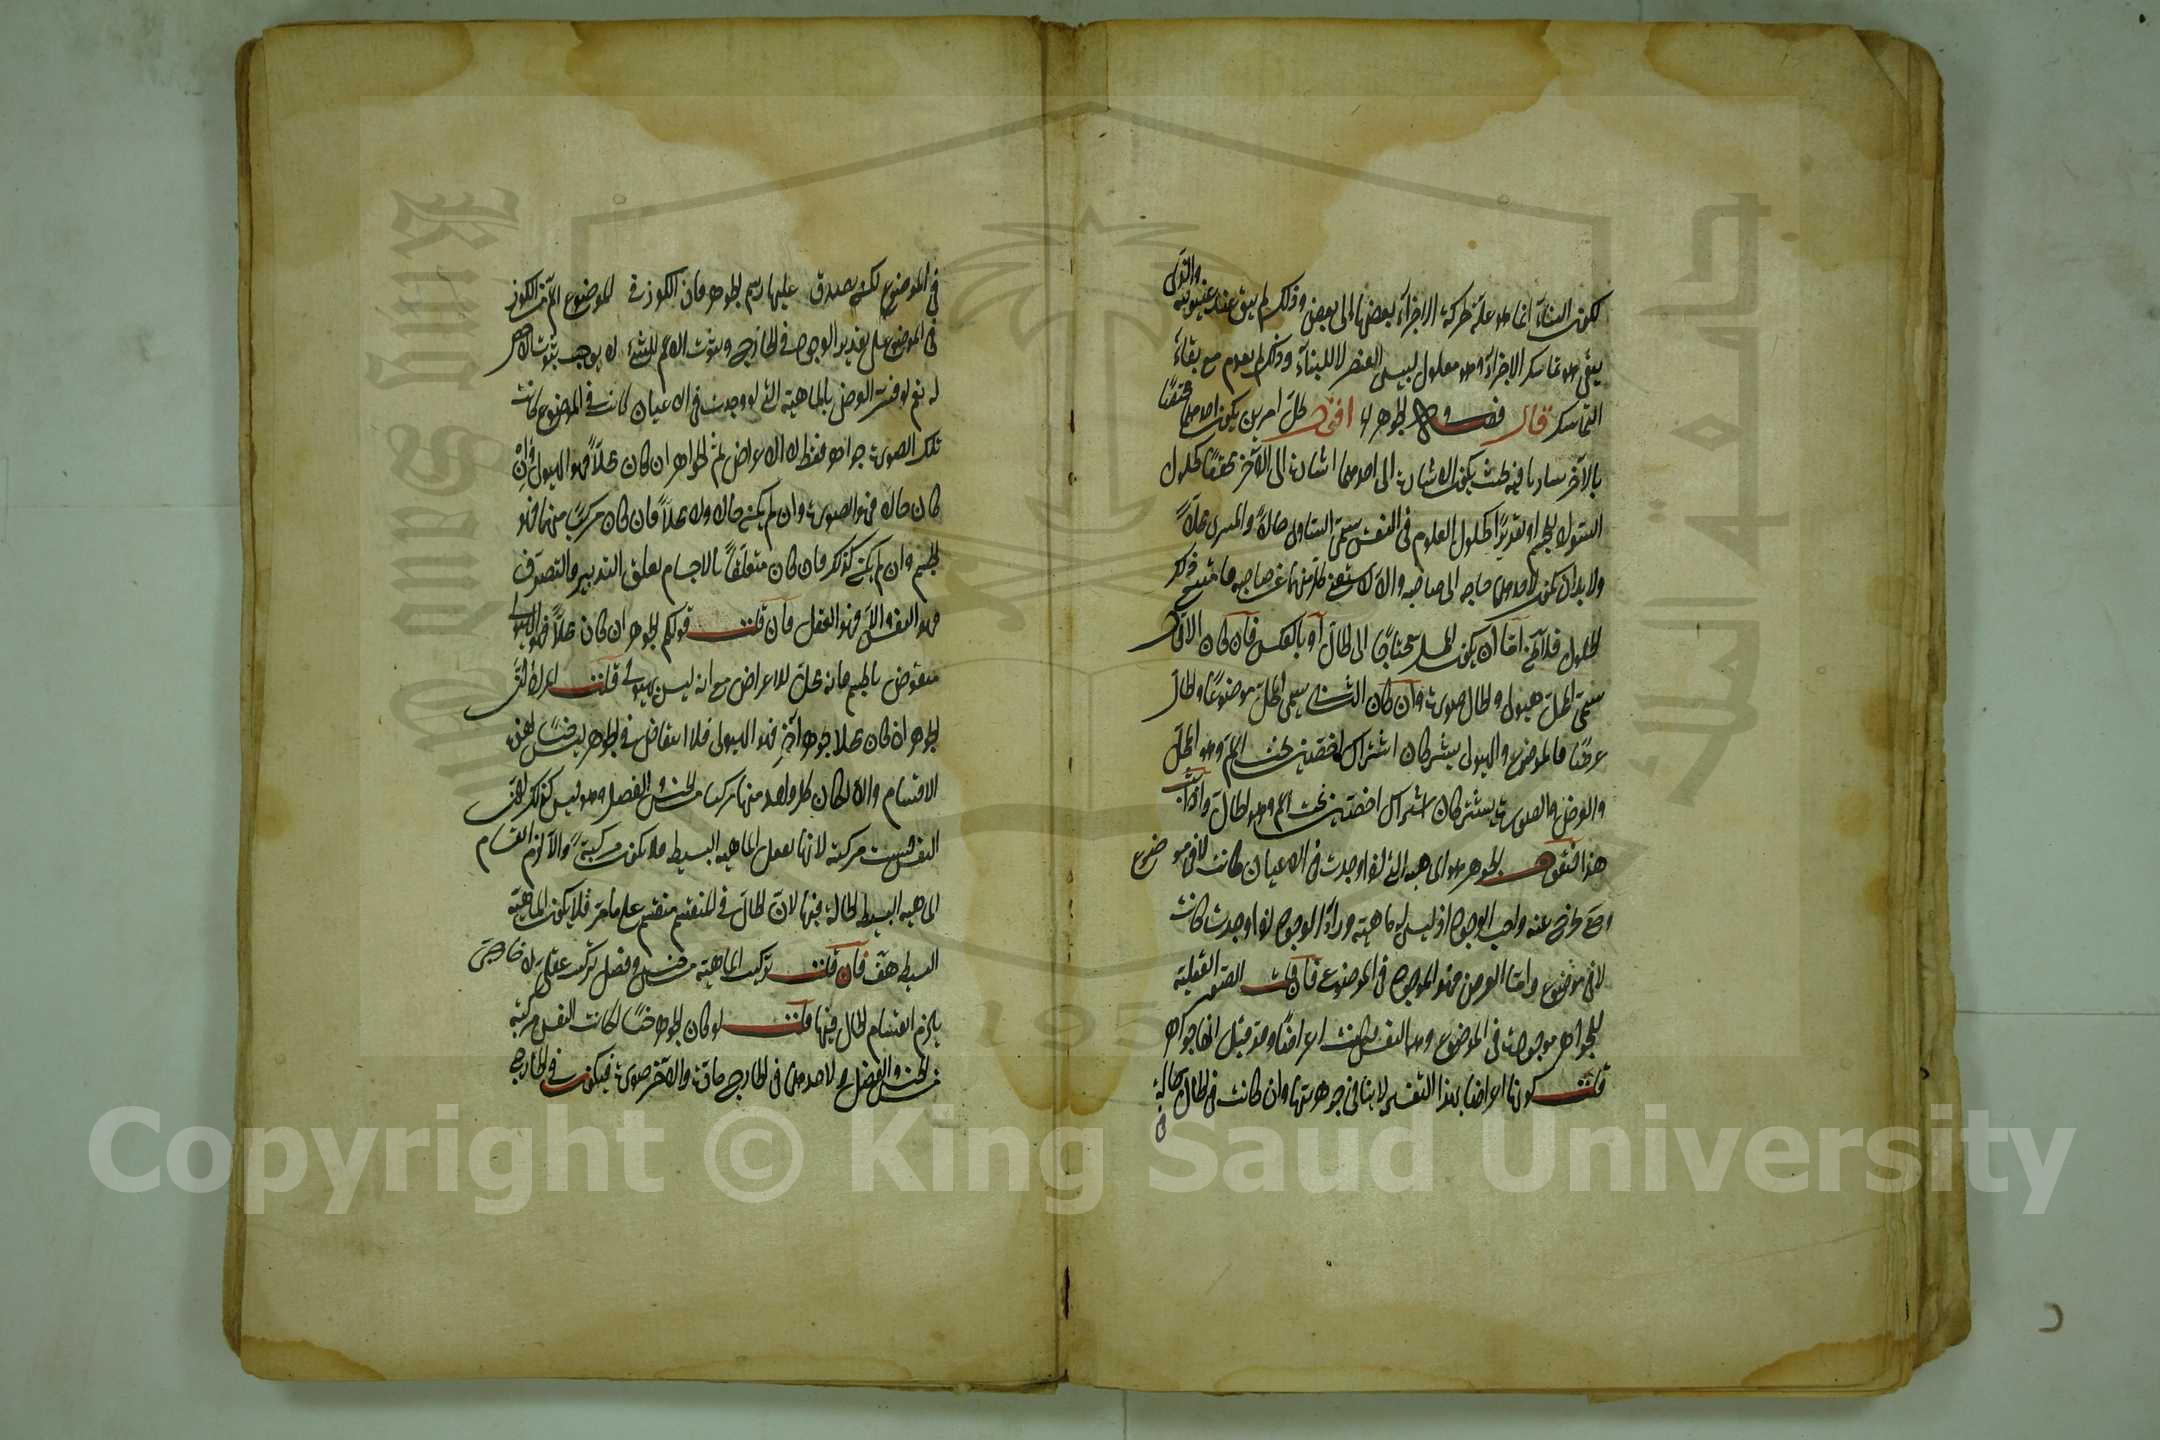 لكون البناء انما هو علة لحركة الاجزاء بعضها الى بعض وذلك لم يبق عند غيبوبته والذي
يبقى هو تماسك الاجزاء وهو معلول ليبس العنصر لا للبناء وذلك لم يعدم مع بقاء
التماسك قال فصل في الجوهر اقول كل امرين يكون احدهما مختصا
بالآخر ساريا فيه بحيث يكون الاشارة الى احدهما اشارة الى الآخر تحقيقا كحلول
السواد الجسم او تقديرا كحلول العلوم في النفس سمى الساري حالا والمسرى محلا
ولا بد ان يكون لاحدهما حاجة الى صاحبه والا لاستغنى كل منهما عن صاحبه فامتنع ذلك
الحلول فلا يخ اما ان يكون المحل محتاجا الى الحال او بالعكس فان كان الاول
سمى المحل هيولى والحال صورة وان كان الثاني سمى المحل موضوعا والحال
عرضا فالموضوع والهيولى يشتركان اشتراك اخصين تحت اعم وهو المحل
والعرض والصورة يشتركان اشتراك اخصين تحت اعم وهو الحال واذا ثبت
هذا فنقول الجوهر هو الماهية التي لو وجدت في الاعيان كانت لا في موضوع
وح يخرج عنه واجب الوجود اذ ليس له ماهية وراء الوجود لو وجدت كانت
لا في موضوع واما العرض فهو الموجود في الموضوع فان قلت الصور العقلية
للجواهر موجودة في الموضوع وهو النفس فكانت اعراضا وقد قيل انها جواهر
قلت كونها اعراضا بهذا التفسير لا ينافي جوهريتها وان كانت في الحال حالة
في
في الموضوع لكن يصدق عليها رسم الجوهر فان الكون في الموضوع اعم من الكون
في الموضوع على تقدير الوجود في الخارج وثبوت الاعم للشيء لا يوجب ثبوت الاخص
له نعم لو فسر العرض بالماهية التي لو وجدت في الاعيان كانت في الموضوع كانت
تلك الصورة جواهر فقط لا اعراض ثم الجواهر ان كان محلا فهو الهيولى وان
كان حالا فهو الصورة وان لم يكن حالا ولا محلا فان كان مركبا منهما فهو
الجسم وان لم يكن كذلك فان كان متعلقا بالاجسام تعلق التدبير والتصرف
فهو النفس والا فهو العقل فان قلت قولكم الجوهر ان كان محلا فهو الهيولى
منقوض بالجسم فانه محل للاعراض مع انه ليس بهيولى قلت المراد ان
الجوهر ان كان محلا لجوهر آخر فهو الهيولى فلا انتقاض في الجوهر ليس جنسا لهذه
الاقسام والا لكان كل واحد منها مركبا من الجنس والفصل وهو ليس كذلك لان
النفس ليست مركبة لانها تعقل الماهية البسيطة فلا يكون مركبة والا لزم انقسام
الماهية البسيطة الحالة فيها لان الحال في المنقسم منقسم على ما مر فلا يكون الماهية
البسيطة هف فان قلت تركب الماهية من جنس وفصل تركب عقلي لا خارجي
يلزم انقسام الحال فيها قلت لو كان الجوهر جنسا لكانت النفس مركبة
من الجنس والفصل ولاحدهما في الخارج مادة والآخر صورة فيكون في الخارج